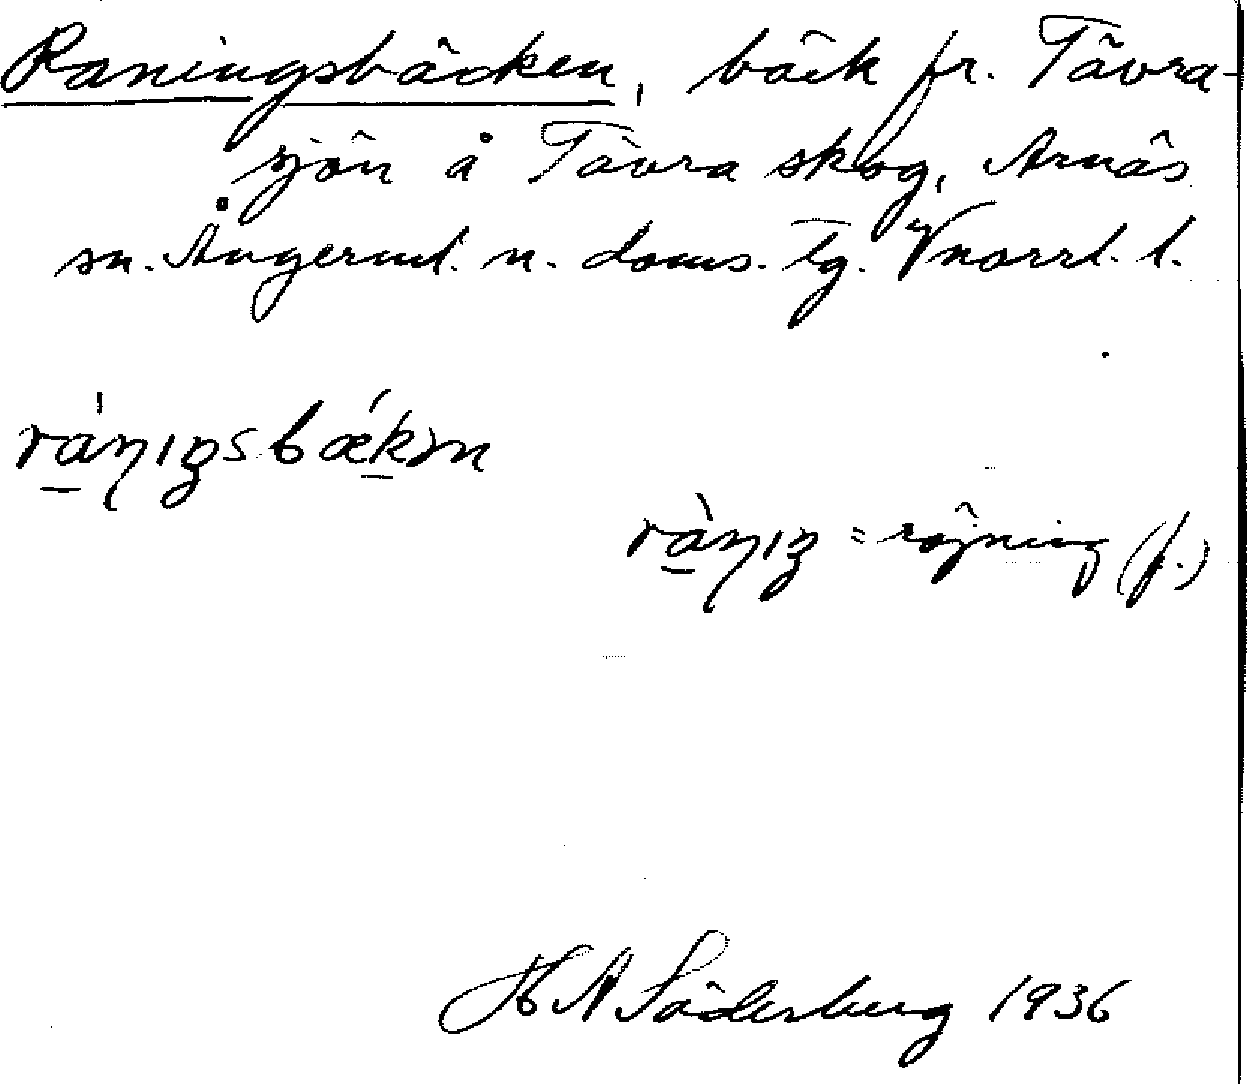 Raningsbäcken, bäck fr. Tävra-
sjön å Tävra skog, Arnäs
sn. Ångerml. n. doms. tg. Vnorrl. l.
ránıŋsbækən
rànıŋ = röjning (f.)
H A Söderberg 1936